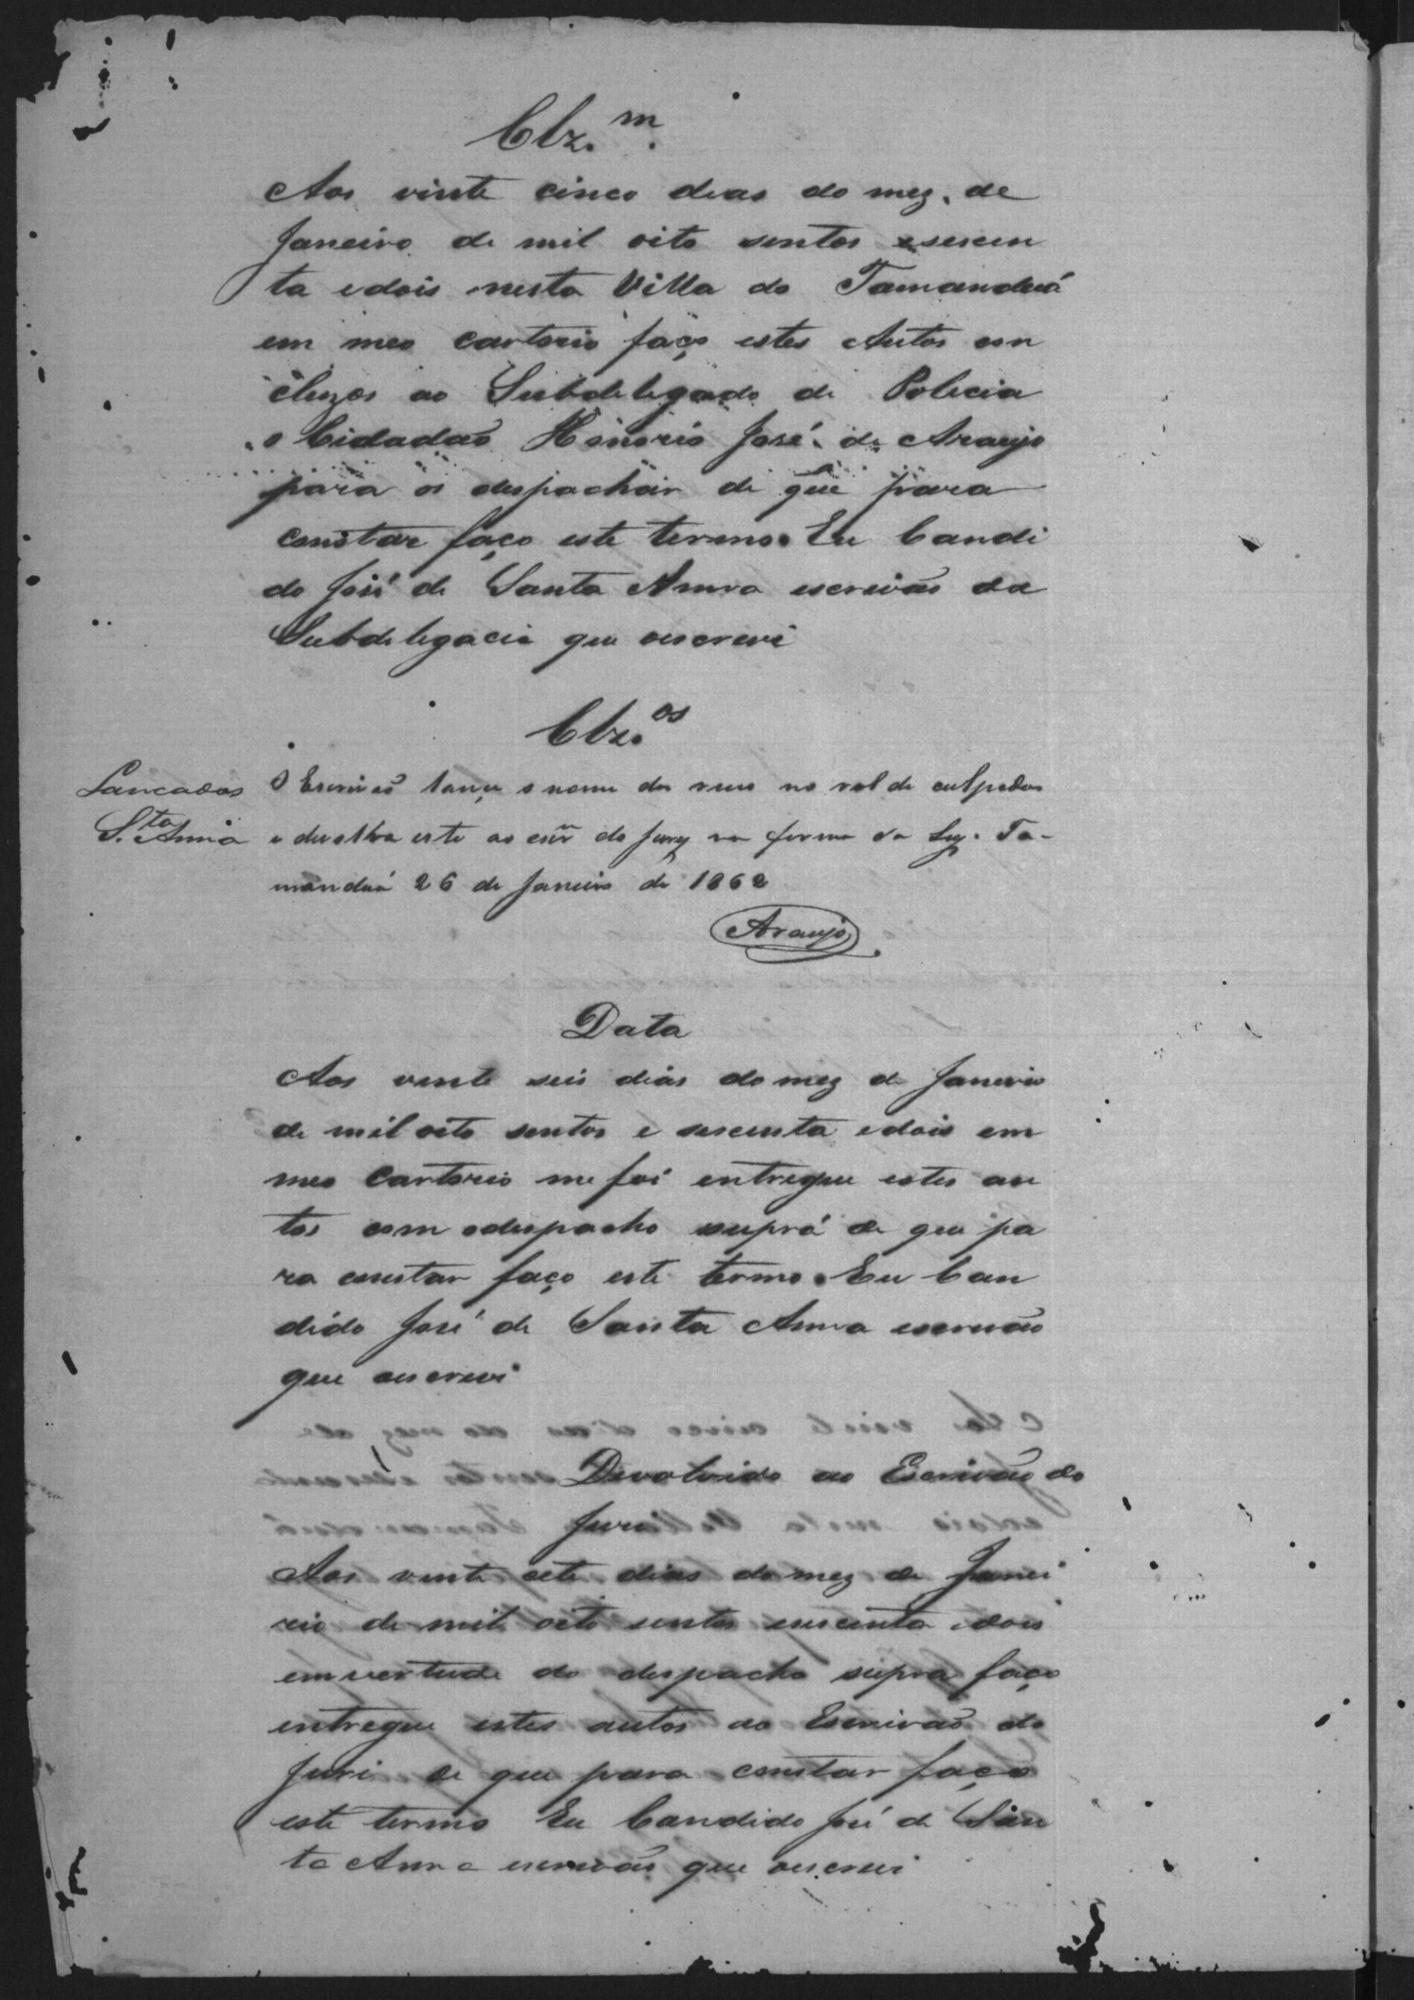 Clz.m
Aos vinte cinco dias do mez de
Janeiro de mil oito sentos e sescen
ta e dois nesta Villa do Tamanduá
em meo cartorio faço estes Autos con
cluzos ao Subdelegado de Policia
o Cidadaõ Honorio José de Araujo
para os despachar de que para
constar faço este termo. Eu Candi
do José de Santa Anna escrivaõ da
Subdelegacia que oescrevi
Clz.os
Lancados
S.ta Anna
O Escrivaõ lançe o nome dos reus no rol de culpados
e devolva este ao esc.m do Jury na forma da Ley. Ta-
manduá 26 de Janeiro de 1862
Araujo
Data
Aos vinte seis dias do mez de Janeiro
de mil oito sentos e sescenta e dois em
meo Cartorio me foi entregue estes au
tos com odespacho suprá de que pa
ra constar faço este termo. Eu Can
dido José de Santa Anna escrivaõ
que oescrevi
Devolvido ao Escrivaõ do
Juri
Aos vinte sete dias do mez de Janei
rio de mil oito sentos esescenta edois
emvertude do despacho supra faço
entregue estes autos ao Escrivaõ do
Juri de que para constar faço
este termo Eu Candido José de San
ta Anna escrivaõ que oescrevi